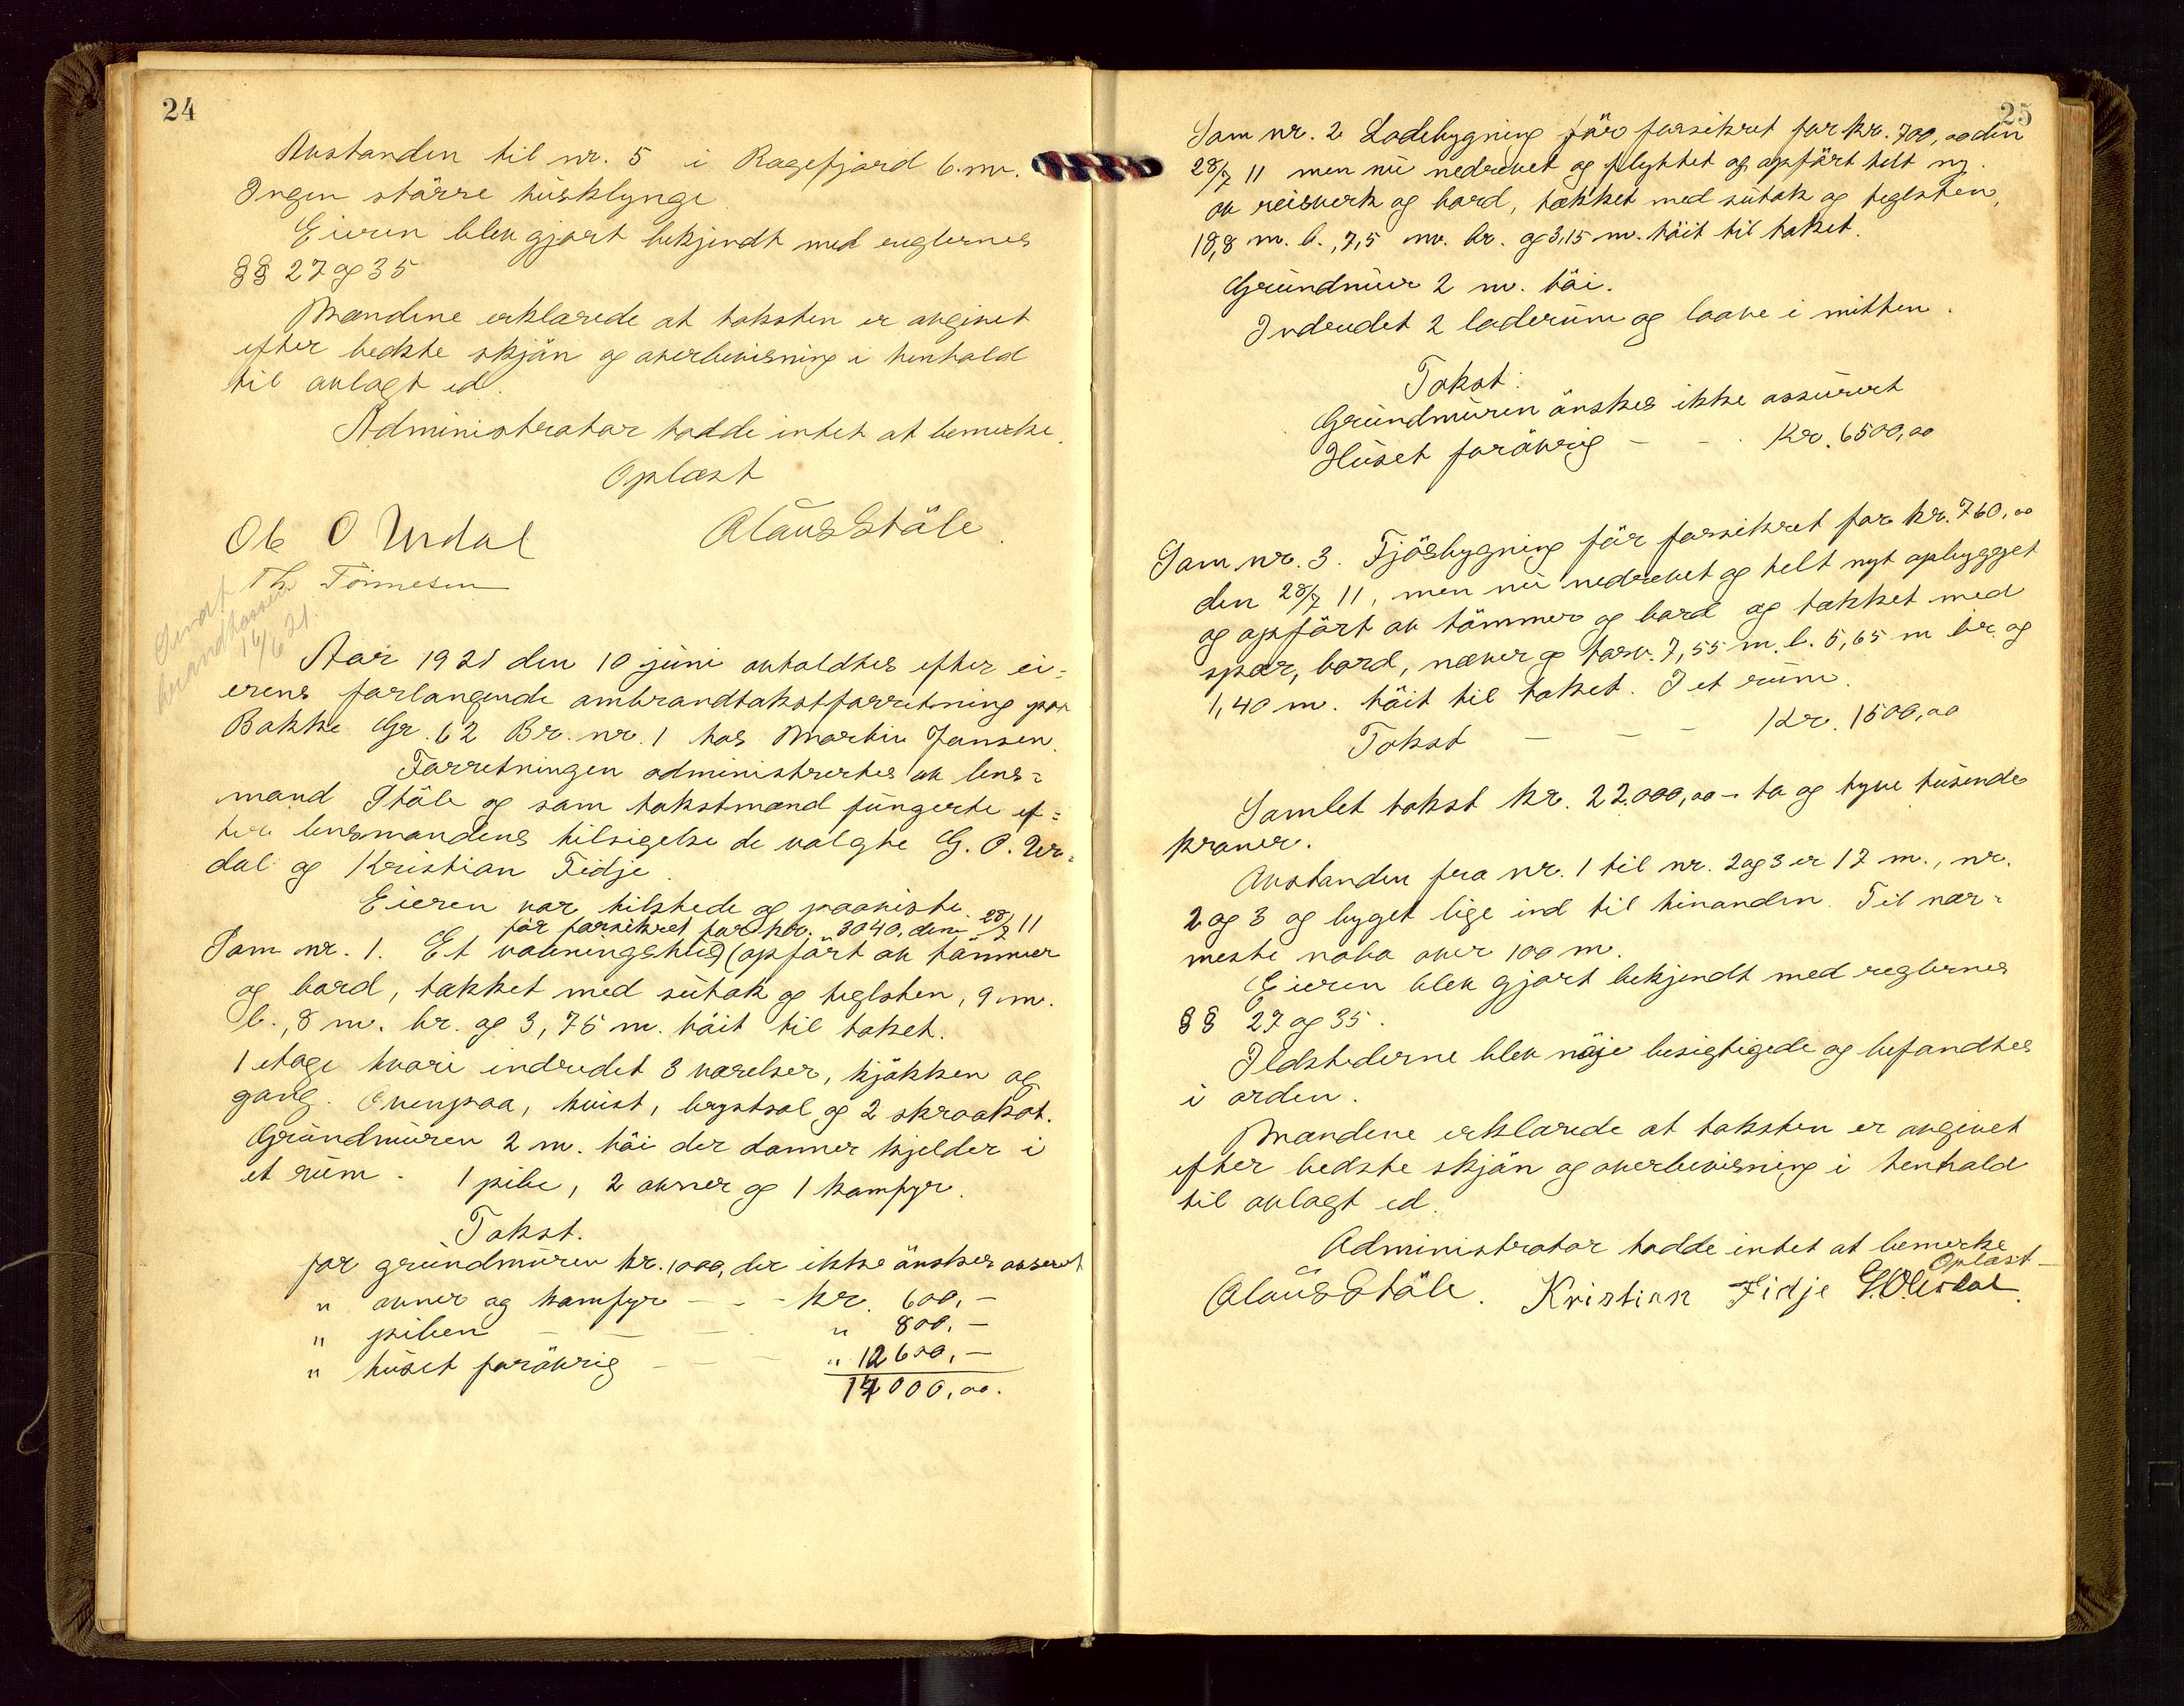 24
Avstanden til nr. 5 i Ragefjord 6. m.
Ingen större husklynge
Eieren blev gjort bekjendt med reglernes
§§ 27 og 35
Mændene erklærede at taksten er avgivet
efter bedste skjön og overbevisning i henhold
til avlagt ed.
Administrator hadde intet at bemerke.
Oplæst
Ole O Urdal Olaus Ståle.
Th. Tönnesen
Sendt
brandkassen
14/6 21.
Aar 1921 den 10 juni avholdtes efter ei-
erens forlangende ombrandtakstforretning paa
Bakke Gr. 62 Br. nr. 1 hos Martin Jansen.
Forretningen administrertes av lens-
mand Ståle og som takstmænd fungerte ef-
ter lensmandens tilsigelse de valgte G. O. Ur-
dal og Kristian Fidje.
Eieren var tilstede og paaviste.
för forsikret for kr. 3040, den 28/7 11
Som nr. 1. Et vaaningshus (opfört av tömmer
og bord, tækket med sutak og teglsten, 9 m.
l., 8 m. br. og 3,75 m. höit til taket.
1 etage hvori indredet 3 værelser, kjökken og
gang. Ovenpaa, kvist, brystsal og 2 skraakot.
Grundmuren 2 m. höi der danner kjelder i
et rum. 1 pibe, 2 ovner og 1 komfyr.
Takst.
for grundmuren kr. 1000, der ikke önskes assurert
" ovner og komfyr - - - kr. 600, -
" piben - - - " 800, -
" huset forövrig - - - " 12600, -
14000,00.
25
Som nr. 2 Ladebygning för forsikret for kr. 700,00 den
28/7 11 men nu nedrevet og flyttet og opfört helt ny.
av reisverk og bord, tækket med sutak og teglsten,
18,8 m. l., 7,5 m. br. og 3,15 m. höit til taket.
Grundmur 2 m. höi.
Indredet 2 laderum og laave i mitten.
Takst:
Grundmuren önskes ikke assurert
Huset forövrig - - Kr. 6500,00
Som nr. 3. Fjösbygning för forsikret for kr. 760,00
den 28/7 11, men nu nedrevet og helt nyt opbygget
og opfört av tömmer og bord og tækket med
spær, bord, næver og torv. 7,55 m. l. 5,65 m br. og
1,40 m. höit til taket. I et rum.
Takst - - - Kr. 1500,00
Samlet takst kr. 22.000,00 - to og tyve tusende
kroner.
Avstanden fra nr. 1 til nr. 2 og 3 er 17 m., nr.
2 og 3 og bygget lige ind til hinanden. Til nær-
meste nabo over 100 m.
Eieren blev gjort bekjendt med reglernes
§§ 27 og 35.
Ildstederne blev nöje besigtigede og befandtes
i orden.
Mændene erklærede at taksten er avgivet
efter bedste skjön og overbevisning i henhold
til avlagt ed.
Administrator hadde intet at bemerke
Oplæst -
Olaus Ståle. Kristian Fidje G. O. Urdal.